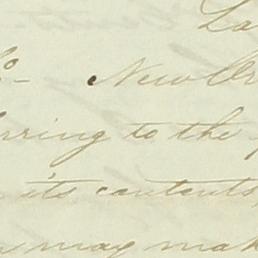 La
New Or
rring to the
its contents,
may mak